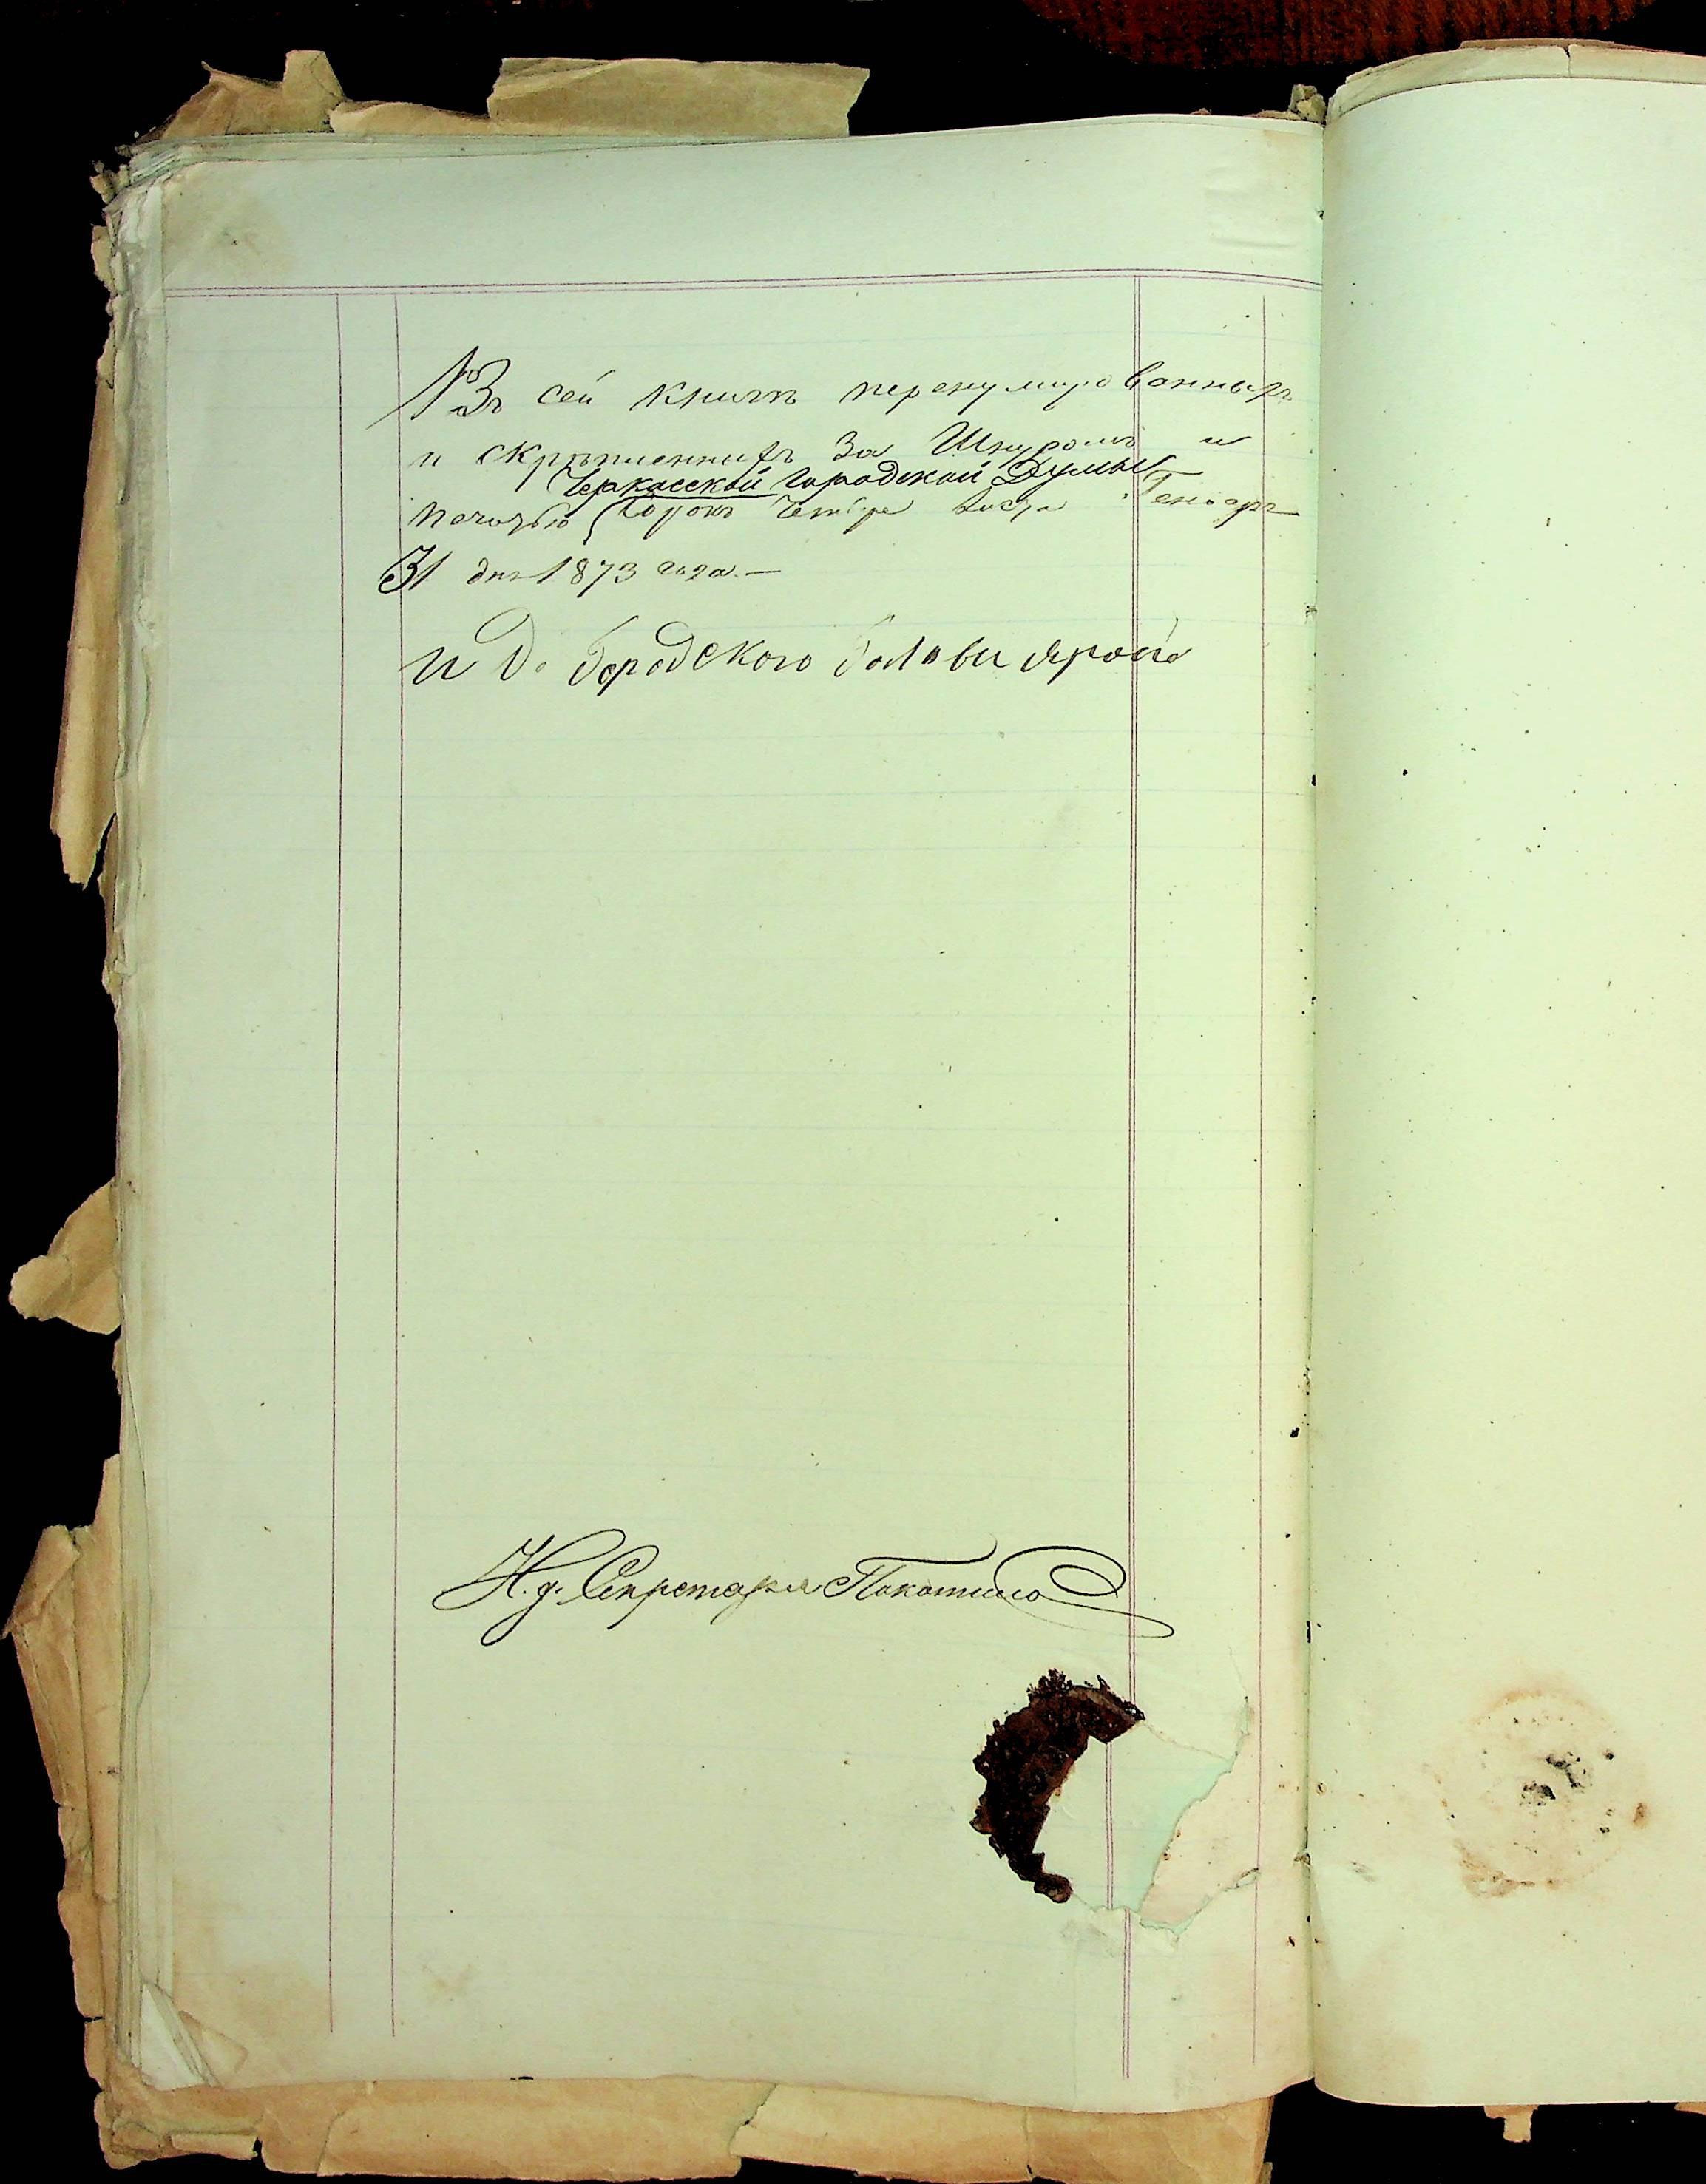 Въ сей книгѣ перенумированныхъ
и скрѣпленныхъ за Шнуромъ и
Черкасской Городской Думы
печатью Сорокъ Четыре листа Генваря
31 дня 1873 года.—
И Д Городского Головы
И. д. Секретаря Покотило